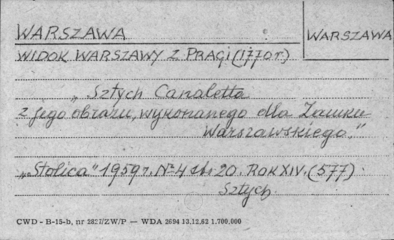 WARSZAWA
WARSZAWA
WIDOK WARSZAWY Z PRAGI (1770 r.)
„Sztych Canaletta
z jego obrazu, wykonanego dla Zamku
Warszawskiego."
„Stolica" 1959 r. Nr 4 str. 20. ROK XIV. (577)
Sztych
CWD - B-15-b, nr 2827/ZW/P — WDA 2694 13.12.62 1.700.000